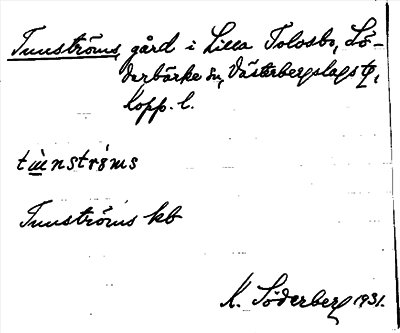 Tunströms, gård i Lilla Tolosbo, Sö-
derbärke sn, Västerbergslags tg,
Kopp. l.
tu̇nströms
Tunströms kb
K. Söderberg 1931.